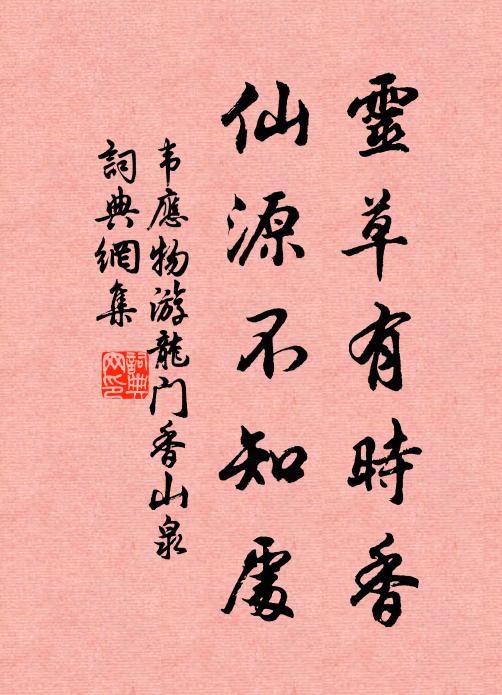 靈草有時香
仙源不知處
韦應物游龍门香山泉
詞典網集
詞典网印